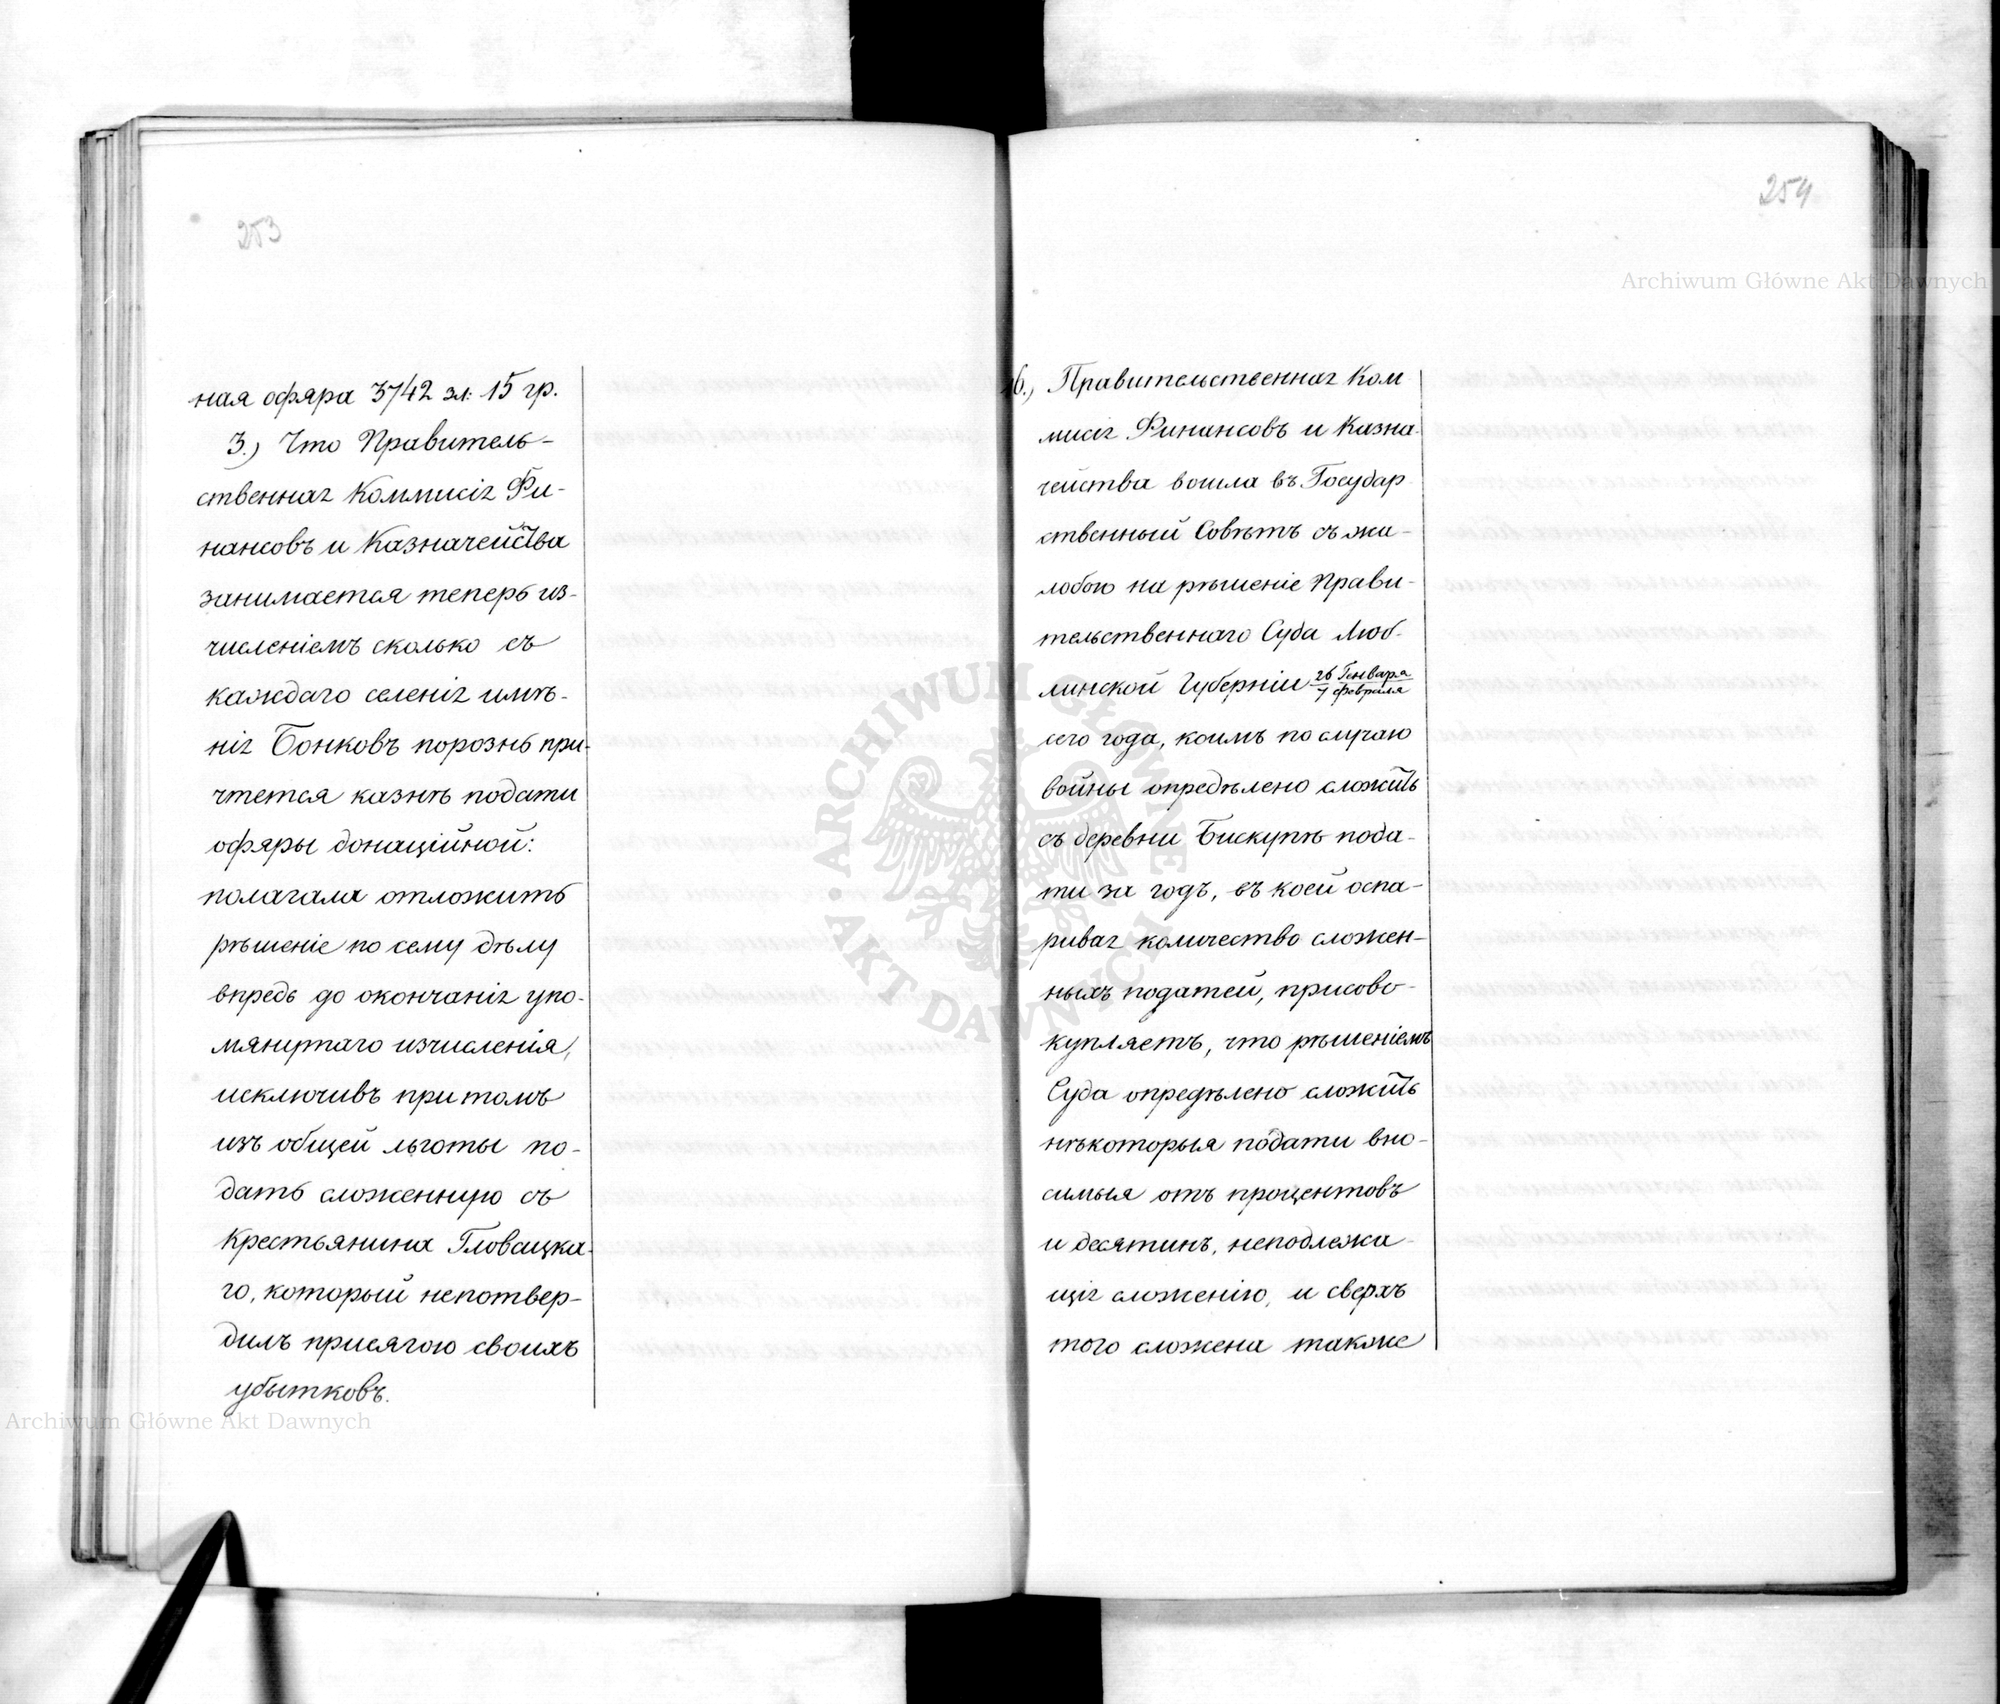 253
ная офяра 3742 зл: 15 гр.
3.) Что Правитель-
ственная Коммисія Фи-
нансовъ и Казначейства
занимается теперь из-
численіемъ сколько съ
каждаго селенія имѣ-
нія Бонковъ порознь при-
чтется казнѣ подати
офяры донаційной:
полагала отложить
рѣшеніе по сему дѣлу
впредь до окончанія упо-
мянутаго изчисленія,
исключивъ при томъ
изъ общей льготы по-
дать сложенную съ
Крестьянина Гловацка-
го, который непотвер-
дилъ присягою своихъ
убытковъ.
254
6., Правительственная Ком
мисія Финансовъ и Казна-
чейства вошла въ Государ
ственный Совѣтъ съ жа-
лобою на рѣшеніе Прави-
тельственнаго Суда Люб-
линской Губерніи 26 Генваря / 7 февраля
сего года, коимъ по случаю
войны опредѣлено сложить
съ деревни Бискупѣ пода-
ти за годъ, въ коей оспа-
ривая количество сложен-
ныхъ податей, присово-
купляетъ, что рѣшеніемъ
Суда опредѣлено сложить
нѣкоторыя подати вно-
симыя отъ процентовъ
и десятинъ, неподлежа-
щія сложенію, и сверхъ
того сложена также
Archiwum Główne Akt Dawnych
Archiwum Główne Akt Dawnych
ARCHIWUM GŁÓWNE AKT DAWNYCH